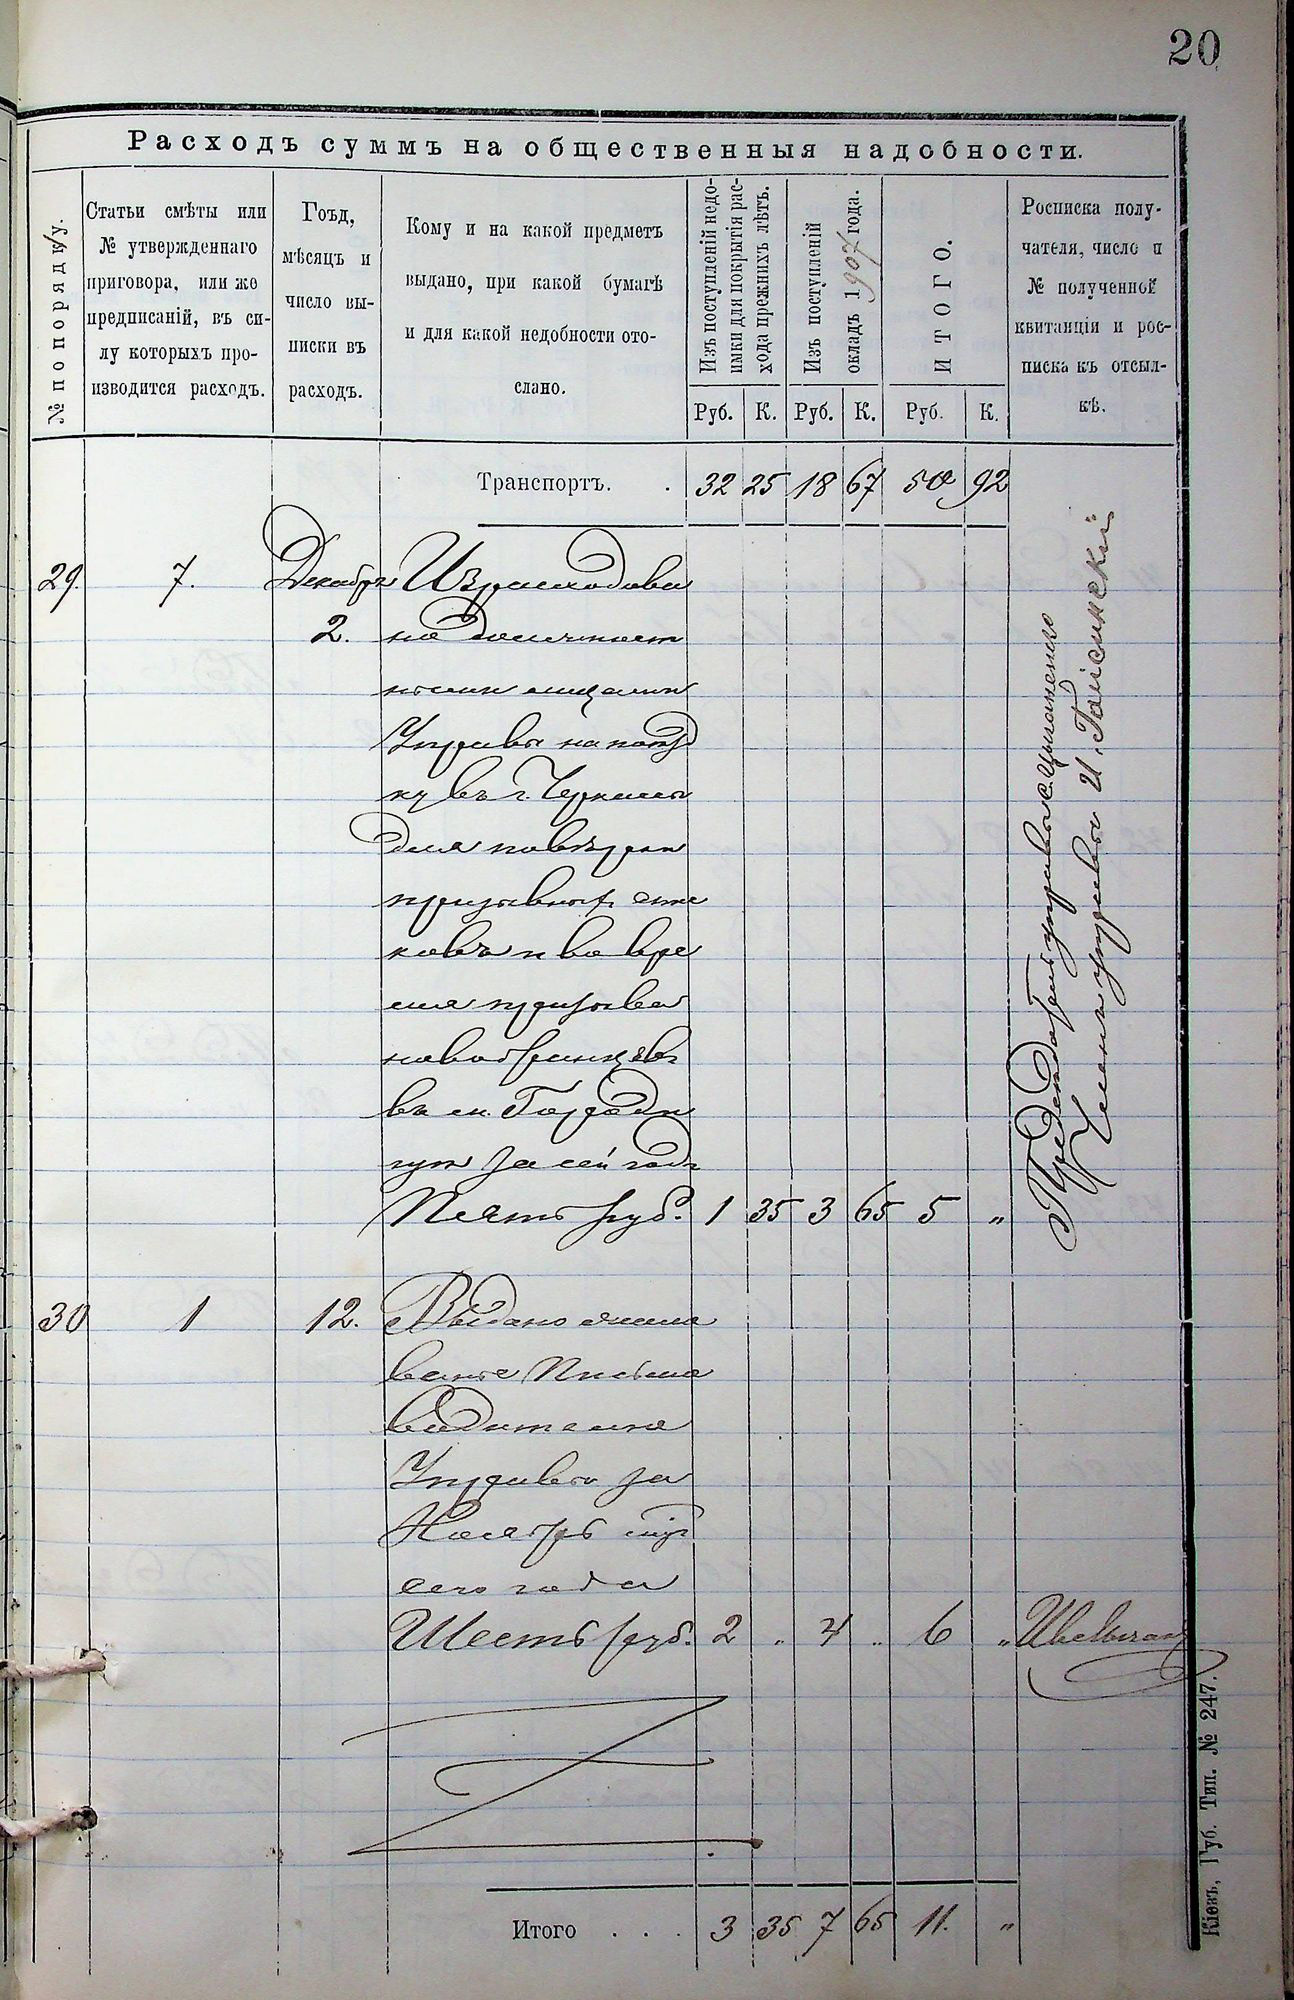 20
Расходъ суммъ на общественныя надобности.
№ по порядку.
Статьи смѣты или
№ утвержденнаго
приговора, или же
предписаній, въ си-
лу которыхъ про-
изводится расходъ.
Гоъд,
мѣсяцъ и
число вы-
писки въ
расходъ.
Кому и на какой предметъ
выдано, при какой бумагѣ
и для какой недобности ото-
слано.
Изъ поступленій недо-
имки для покрытія рас-
хода прежнихъ лѣтъ.
Изъ поступленій
окладъ 1907 года.
ИТОГО.
Росписка полу-
чателя, число и
№ полученной
квитанціи и рос-
писка къ отсыл-
кѣ.
Руб. К. Руб. К. Руб. К.
Транспортъ. . 32 25 18 67 50 92
29. 7. Декабря Израсходова
2. но должност
ными мещанск
Управы на поѣзд
ку въ г. Черкассы
для повѣрки
призывныхъ спис
ковъ и во вре
мя призыва
новобранцевъ
въ м. Городи
ще за сей годъ
Пять руб. 1 35 3 65 5 "
Предсѣдатель управы С. Цыганенко
Члены управы И. Гайсинскій
30 1 12. Выдано жало
ванье Письмо
водителю
Управы за
Ноябрь мѣс
сего года
Шесть руб. 2 " 4 " 6 "
Итого . . . 3 35 7 65 11. "
Кіевъ, Губ. Тип. № 247.